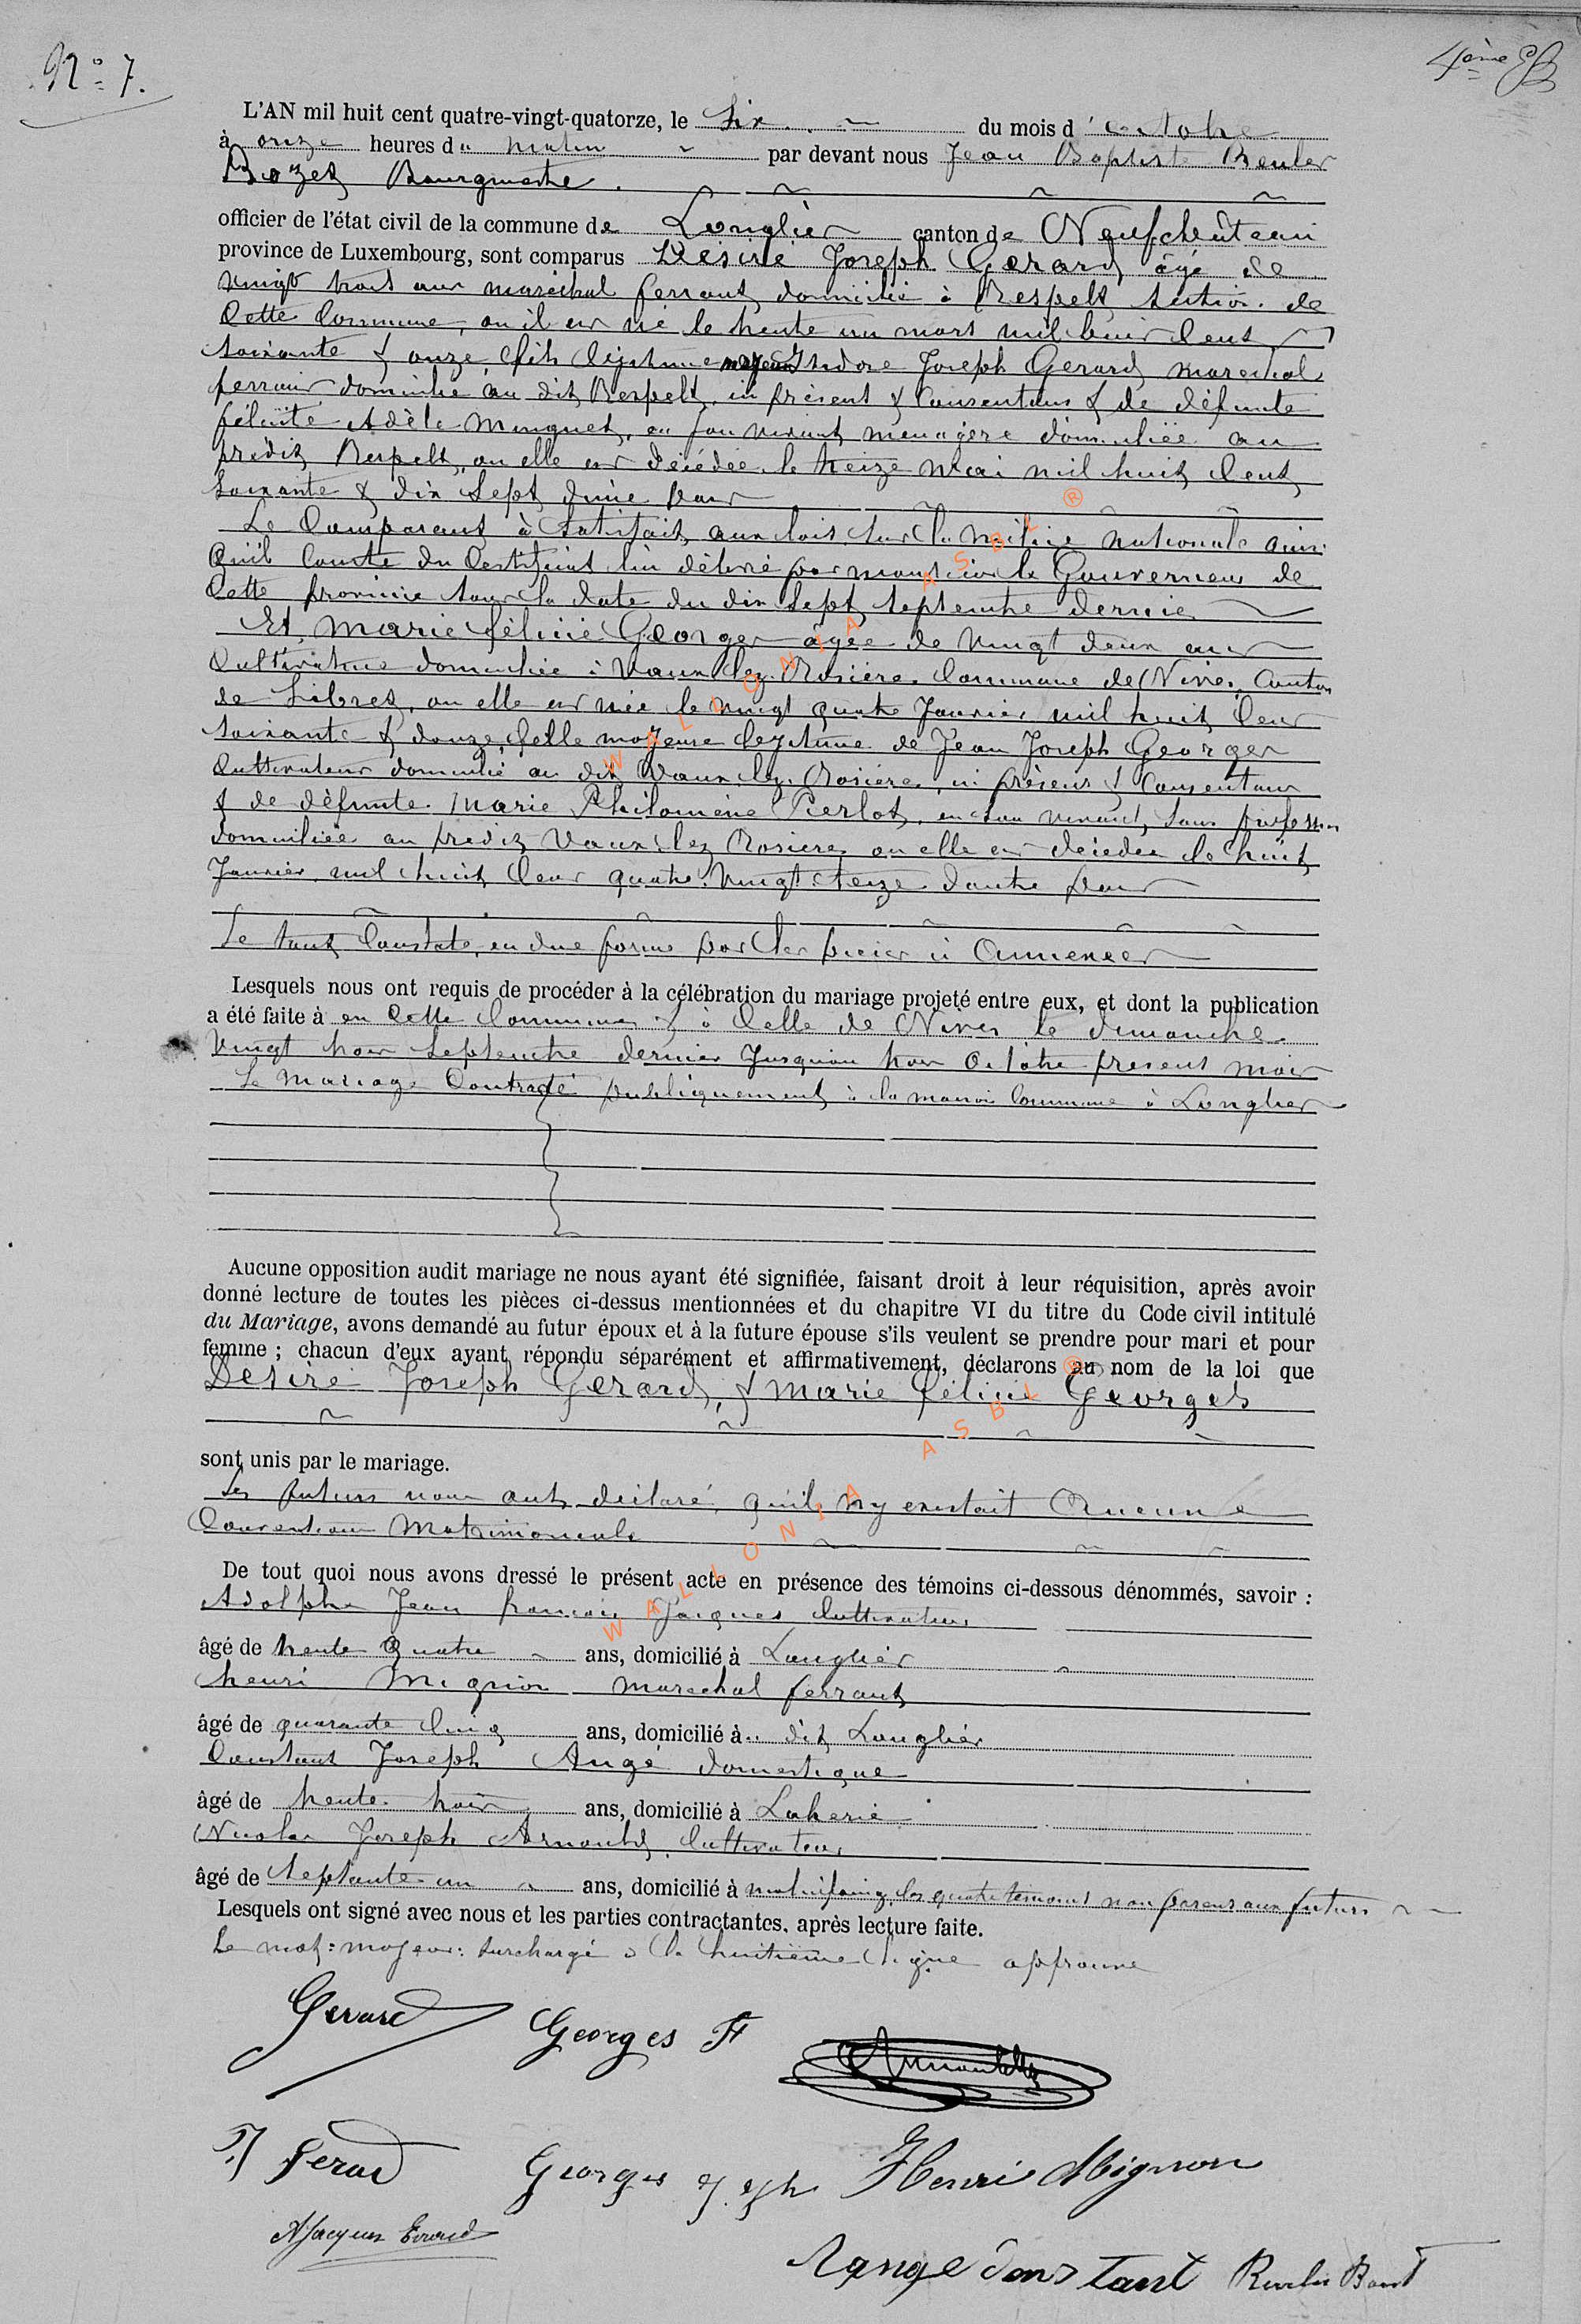 N° 7.
4ème
L'AN mil huit cent quatre-vingt-quatorze, le Six du mois d'octobre
à onze heures du matin par devant nous Jean Baptiste Reuler
Bozet Bourgmestre
officier de l'état civil de la commune de Longlier canton de Neufchâteau
province de Luxembourg, sont comparus Désiré Joseph Gerard âgé de
vingt trois ans maréchal ferrant domicilié à Respelt section de
cette commune, où il est né le trente un mars mil huit cent
soixante & onze, fils légitime majeur Isidore Joseph Gerard marechal
ferrant domicilié au dit Respelt, ici présent & consentant & de défunte
félicité Adèle Minguet, en son vivant ménagère domiciliée au
prédit Respelt, où elle est décédée le treize mai mil huit cent
soixante & dix sept d'une part
Le comparant à satisfait aux lois sur la milice nationale ainsi
qu'il conste du certificat lui délivré par monsieur le Gouverneur de
cette province sous la date du dix sept septembre dernier
Et, Marie félicie Georges âgée de vingt deux ans
cultivatrice domiciliée à Vaux lez Rosières commune de Nives, Canton
de Sibret, où elle est née le vingt quatre Janvier mil huit cent
soixante & douze, fille majeure légitime de Jean Joseph Georges
cultivateur domicilié au dit Vaux lez Rosières, ici présent & consentant
& de défunte Marie Philomène Pierlot, en son vivant, sans profession
domiciliée au prédit Vaux lez Rosières où elle est décédée le huit
Janvier mil huit cent quatre vingt treize d'autre part
Le tout constaté en due forme par les pièces ci annexées
Lesquels nous ont requis de procéder à la célébration du mariage projeté entre eux, et dont la publication
a été faite à en cette commune & à celle de Nives le dimanche
vingt trois septembre dernier jusqu'au trois octobre présent mois
Le mariage contracté publiquement à la maison commune à Longlier
Aucune opposition audit mariage ne nous ayant été signifiée, faisant droit à leur réquisition, après avoir
donné lecture de toutes les pièces ci-dessus mentionnées et du chapitre VI du titre du Code civil intitulé
du Mariage, avons demandé au futur époux et à la future épouse s'ils veulent se prendre pour mari et pour
femme ; chacun d'eux ayant répondu séparément et affirmativement, déclarons au nom de la loi que
Désiré Joseph Gerard, & Marie félicie Georges
sont unis par le mariage.
Les futurs nous ont déclaré qu'il n'y existait Aucune
Convention Matrimoniale
De tout quoi nous avons dressé le présent acte en présence des témoins ci-dessous dénommés, savoir :
Adolphe Jean françois Jacques cultivateur
âgé de trente quatre ans, domicilié à Longlier
henri Mignon marechal ferrant
âgé de quarante cinq ans, domicilié à dit Longlier
Constant Joseph Augé domestique
âgé de trente trois ans, domicilié à Laherie
Nicolas Joseph Arnould, cultivateur
âgé de septante un ans, domicilié à les quatre témoins non parens aux futurs
Lesquels ont signé avec nous et les parties contractantes, après lecture faite.
Le mot : majeur : surchargé à la huitième ligne approuvé
Gerard Georges F Arnould
Gerard Georges J. Jph Henri Mignon
AJacques Evrard
Constant
WALLONIA ASBL ®
WALLONIA ASBL ®